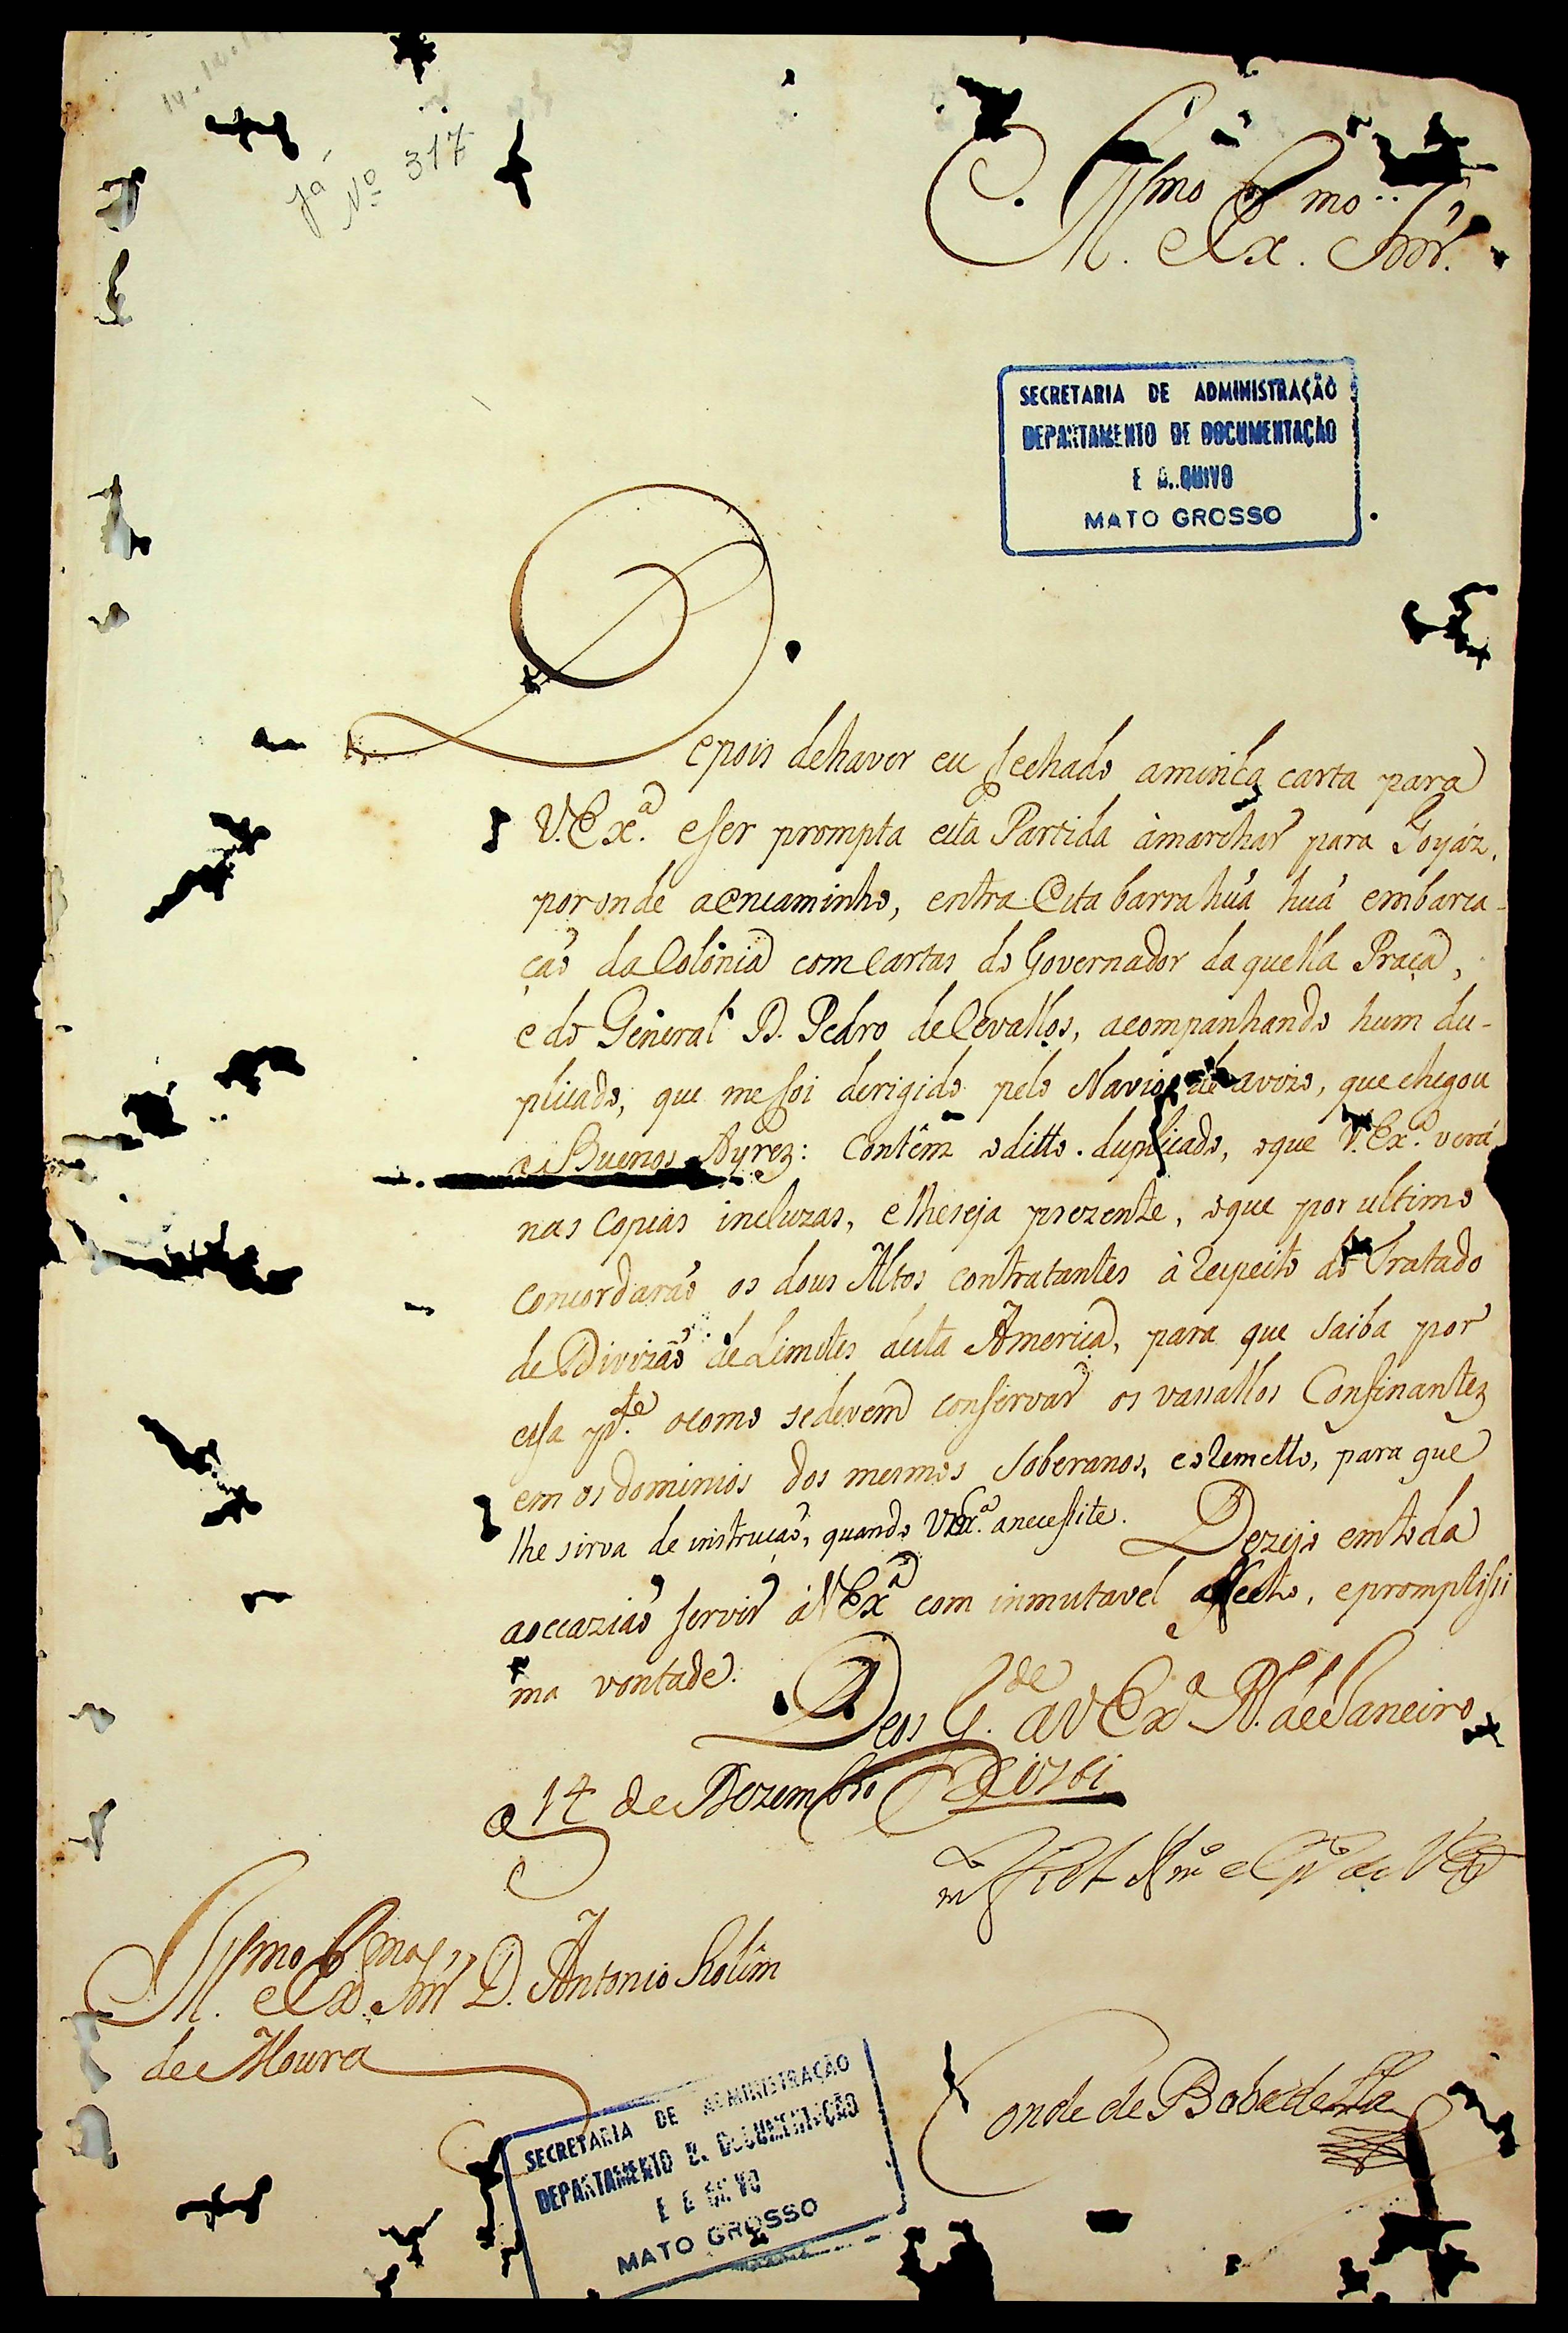 Já
Nº 317
Illmo e Exmo Snr.
SECRETARIA DE ADMINISTRAÇÃO
DEPARTAMENTO DE DOCUMENTAÇÃO
E A..QUIVO
MATO GROSSO
Depois dehaver eu fechado aminha carta para
V.Exª. eser prompta esta Partida àmarchar para Goyáz,
poronde aencaminho, entra Esta barra húa húa embarca-
çaõ da Colónia com Cartas do Governador daquella Praça,
e do General D. Pedro de Cevallos, acompanhando hum du-
plicado, que me foi derigido pelo Navio de avizo, que chegou
a Buenos Ayrez: Contêm oditto duplicado, oque V.Exª. verá
nas copias incluzas, e lheseja prezente, oque por ultimo
concordaraõ os dous Altos contratantes à respeito do Tratado
de Divizaõ de Limites desta America, para que saiba por
essa pte. ocomo sedevem conservar os vassallos Confinantez
em os dominios dos mesmos Soberanos, eoremetto, para que
lhe sirva de instruçaõ, quando VExª. anecessite. Dezejo emtoda
aoccaziaõ servir àVExª com inmutavel affecto, epromptissi
ma vontade. Deos G.de aVExª R. de Janeiro
a 14 de Dezembro de 1761
Illmo e Exmo Snr D. Antonio Rolim
de Moura
Conde de Bobadella
SECRETARIA DE ADMINISTRAÇÃO
DEPARTAMENTO DE DOCUMENTAÇÃO
MATO GROSSO